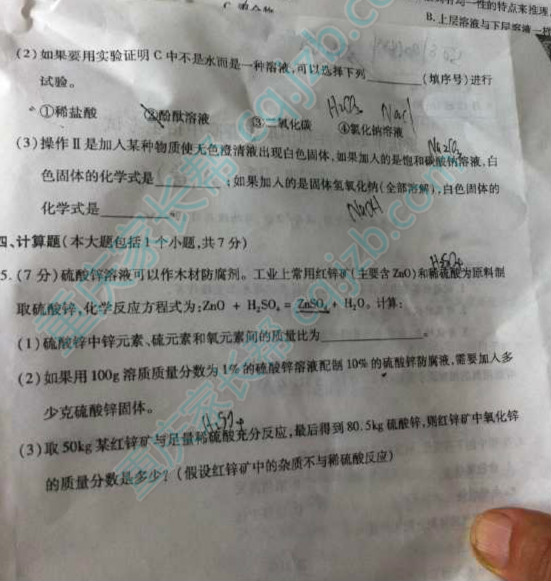 C. 混合物
B. 上层溶液与下层溶液一样
(2) 如果要用实验证明 C 中不是水而是一种溶液,可以选择下列________(填序号)进行
试验。
H2CO3 NaCl
①稀盐酸 ②酚酞溶液 ③二氧化碳 ④氯化钠溶液
Na2CO3
(3) 操作 Ⅱ 是加入某种物质使无色澄清液出现白色固体,如果加入的是饱和碳酸钠溶液,白
色固体的化学式是________;如果加入的是固体氢氧化钠(全部溶解),白色固体的
NaOH
化学式是________。
四、计算题(本大题包括1个小题,共7分)
H2SO4
5. (7分)硫酸锌溶液可以作木材防腐剂。工业上常用红锌矿(主要含ZnO)和稀硫酸为原料制
取硫酸锌,化学反应方程式为:ZnO + H₂SO₄ = ZnSO₄ + H₂O。计算:
(1) 硫酸锌中锌元素、硫元素和氧元素间的质量比为________
(2) 如果用100g溶质质量分数为1%的硫酸锌溶液配制10%的硫酸锌防腐液,需要加入多
少克硫酸锌固体。
H2SO4
(3) 取50kg某红锌矿与足量稀硫酸充分反应,最后得到80.5kg硫酸锌,则红锌矿中氧化锌
的质量分数是多少?(假设红锌矿中的杂质不与稀硫酸反应)
重庆家长帮 cq.jzb.com